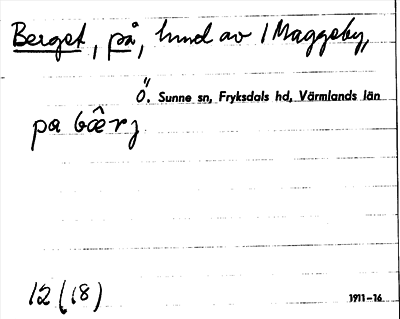 Berget, på, lund av 1 Maggeby,
Ö. Sunne sn, Fryksdals hd, Värmlands län
pa bæ̂rj
12 (18)
1911-16